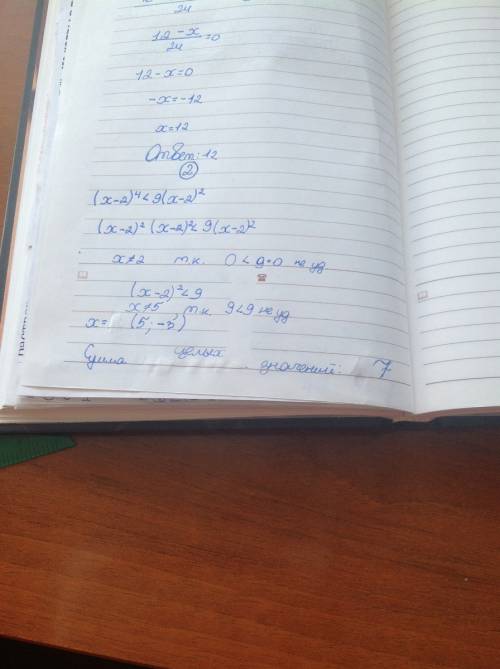 24
12-x/24=0
12-x=0
-x=-12
x=12
Ответ: 12
2
(x-2)⁴<9(x-2)²
(x-2)²(x-2)²<9(x-2)²
x≠2 т.к. 0<9*0 не уд
(x-2)²<9
x≠5 т.к. 9<9 не уд
x= (5; -3)
Сумма целых значений: 7